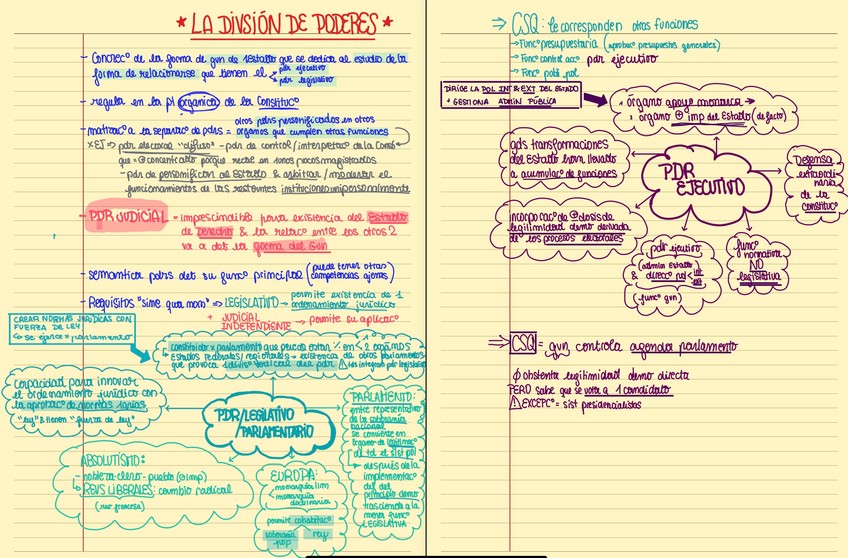 ★ LA DIVSIÓN DE PODERES ★
- Concrecº de la forma de gvn de 1estado que se dedica al estudio de la
forma de relacionarse que tienen el < pdr ejecutivo
pdr legislativo
- regula en la pt orgánica de la Constitucº
otros pdrs personificados en otros
- matizacº a la separacº de pdrs = órganos que cumplen otras funciones
x EJ → pdr electoral "difuso" - pdr de control/interpretac de la Const
que = ⊕ concentrado porque recae en unos pocos magistrados
- pdr de personificar al Estado & arbitrar/moderar el
funcionamiento de las restantes instituciones unipersonalmente
- PDR JUDICIAL = imprescindible para existencia del Estado
de Derecho & la relacº entre los otros 2
va a det la forma del Gvn
- semántica pdrs det su funcº principal (puede tener otras
competencias ajenas)
- Requisitos "sine qua mom" ⇒ LEGISLATIVO → permite existencia de 1
ordenamiento jurídico
+ JUDICIAL
INDEPENDIENTE → permite su aplicacº
CREAR NORMAS JURÍDICAS CON
FUERZA DE LEY
↳ se ejerce x parlamento
constituido x parlamento que puede estar ÷ en < 2 órganos
↳ estados federales/regionales → existencia de otros parlamentos
que provoca 1 divisº vertical del pdr
capacidad para innovar
el ordenamiento jurídico con
la aprobacº de normas
"ley" & tienen "fuerza de ley"
PDR/LEGILATIVO
/PARLAMENTARIO
PARLAMENTO:
ente representativo
de la soberanía
nacional
se convierte en
órgano de legitimacº
del tot el sist pol
→ después de la
implementac
del del
principio demo
trasciende a la
mera funcº
LEGISLATIVA
ABSOLUTISMO:
- nobleza-clero-pueblo (⊖imp)
→ REVS LIBERALES: cambio radical
(rev francesa)
EUROPA:
< monarquía lim
monarquía
doctrinaria
permite cohabitac
soberanía rey
pop
⇒ CSQ: le corresponden otras funciones
→ Funcº presupuestaria (aprobac presupuestos generales)
→ Funcº control accº pdr ejecutivo
→ Funcº pobl pol
DIRIGE LA POL INT & EXT DEL ESTADO
+ GESTIONA ADMIN PÚBLICA
• órgano apoyo monarca →
= órgano ⊕ imp del Estado (de facto)
gds transformaciones
del Estado han llevado
a acumulac de funciones
PDR
EJECUTIVO
Defensa
extraordi
naria
de la
constitucº
incorporac de ⊕ dosis de
legitimidad demo derivada
de los procesos electorales
pdr ejecutivo
(admin estado
& direccº pol < int
ext
(funcº gvn)
funcº
normativa
NO
legislativa
⇒ CSQ = gvn controla agenda parlamento
∅ obstenta legitimidad demo directa
PERO sabe que se vota a 1 candidato
⚠ EXCEPCº = sist presidencialistas